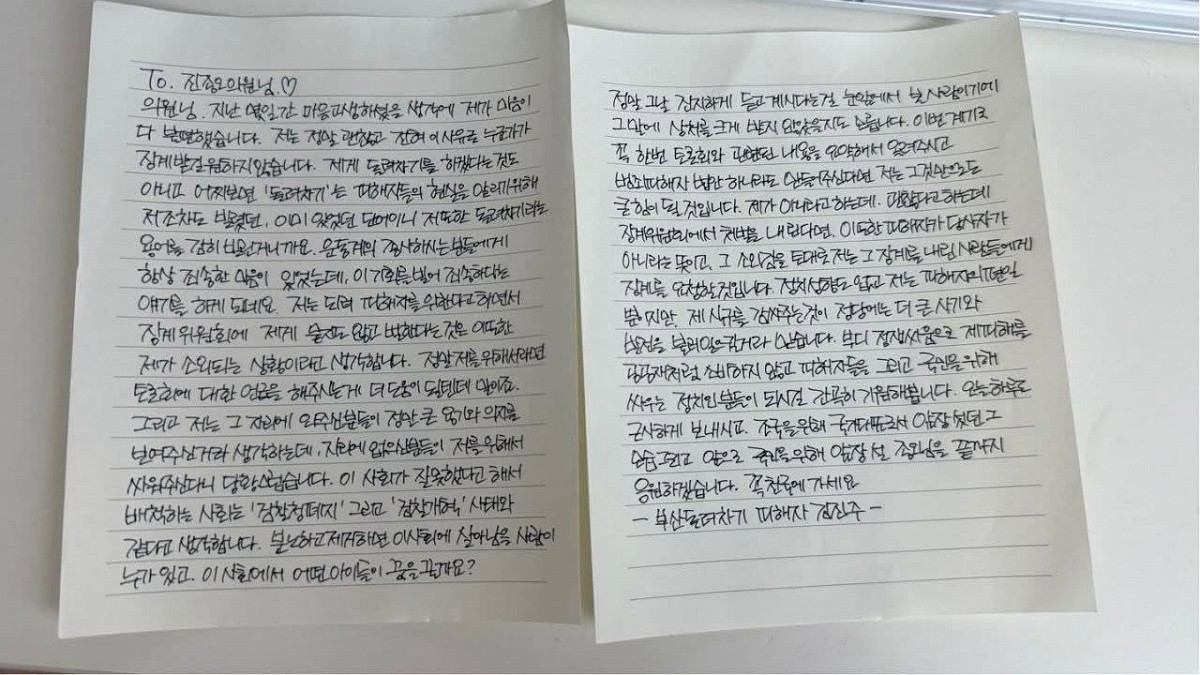 To. 진종오의원님.♡
의원님. 지난 몇일간 마음고생하셨을 생각에 제가 마음이
다 불편했습니다. 저는 정말 괜찮고 전혀 이 사유로 누군가가
징계받길 원하지 않습니다. 제게 돌려차기를 하겠다는 것도
아니고 어찌보면 '돌려차기'는 피해자들의 현실을 알리기위해
저조차도 빌렸던, 이미 있었던 단어이니 저또한 돌려차기라는
용어를 감히 빌린거니까요. 운동계의 종사하시는 분들에게
항상 죄송한 마음이 있었는데, 이 기회를 빌어 죄송하다는
얘기를 하게 되네요. 저는 되려 피해자를 위한다고 하면서
징계위원회에 제게 묻지도 않고 벌한다는 것은 이또한
제가 소외되는 상황이라고 생각합니다. 정말 저를 위해서라면
토론회에 대한 언급을 해주시는게 더 도움이 될텐데 말이죠.
그리고 저는 그 자리에 와주신분들이 정말 큰 용기와 의지를
보여주신거라 생각하는데, 자리에 없으신분들이 저를 위해서
싸워주신다니 당황스럽습니다. 이 사회가 잘못했다고 해서
배척하는 사회는 '검찰청폐지' 그리고 '검찰개혁' 사태와
같다고 생각합니다. 비난하고 제거하면 이 사회에 살아남을 사람이
누가 있고. 이 사회에서 어떤 아이들이 꿈을 꿀까요?
정말 그날 진지하게 듣고 계시다는걸 눈앞에서 본 사람이기에
그말에 상처를 크게 받지 않았을지도 모릅니다. 이번 계기로
꼭 한번 토론회와 관련된 내용을 요약해서 알려주시고
범죄피해자 법안 하나라도 만들어주신다면 저는 그것만으로도
큰 힘이 될 것입니다. 제가 아니라고 하는데. 괜찮다고 하는데
징계위원회에서 처벌을 내린다면. 이또한 피해자가 당사자가
아니라는 뜻이고, 그 소외감을 토대로 저는 그 징계를 내린 사람들에게
징계를 요청할 것입니다. 정치성향도 없고 저는 피해자의 편일
뿐이지만, 제 시구를 감싸주는것이 정당에는 더 큰 사기와
발전을 불러일으킬거라 믿습니다. 부디 정쟁싸움으로 제 피해를
공공재처럼 소비하지 않고 피해자들을 그리고 국민을 위해
싸우는 정치인분들이 되시길 간곡히 기원해봅니다. 오늘 하루도
근사하게 보내시고. 조국을위해 국가대표로서 앞장 섰던 그
모습 그리고 앞으로 국민을위해 앞장 설 종오님을 끝까지
응원하겠습니다. 꼭 천국에 가세요
- 부산돌려차기 피해자 김진주 -